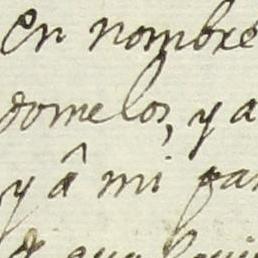 en nombre
tomelos, y a
y â mi pa